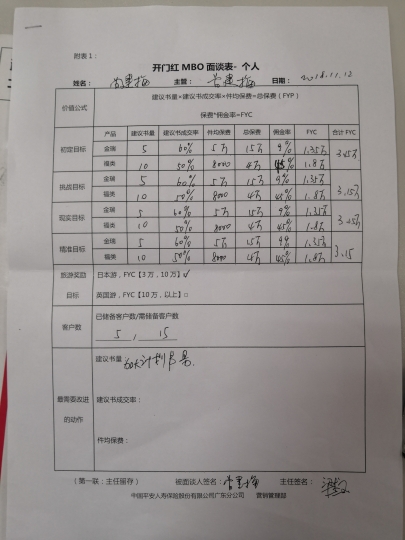 附表1：
开门红MBO面谈表- 个人
姓名： 主管：曾建梅 日期：2018.11.12
价值公式 建议书量*建议书成交率*件均保费=总保费（FYP）
保费*佣金率=FYC
产品 建议书量 建议书成交率 件均保费 总保费 佣金率 FYC 合计FYC
初定目标 金瑞 5 60% 5万 15万 9% 1.35万 3.15万
福类 10 50% 8000 4万 45% 1.8万
挑战目标 金瑞 5 60% 5万 15万 9% 1.35万 3.15万
福类 10 50% 8000 4万 45% 1.8万
现实目标 金瑞 5 60% 5万 15万 9% 1.35万 3.15万
福类 10 50% 8000 4万 45% 1.8万
精准目标 金瑞 5 60% 5万 15万 9% 1.35万 3.15
福类 10 50% 8000 4万 45% 1.8万
旅游奖励 日本游，FYC【3万，10万】√
目标 英国游，FYC【10万，以上】□
客户数 已储备客户数/需储备客户数
5 , 15
建议书量：加大计划书量.
最需要改进 建议书成交率：
的动作
件均保费：
（第一联：主任留存） 被面谈人签名：曾建梅 主任签名：
中国平安人寿保险股份有限公司广东分公司 营销管理部